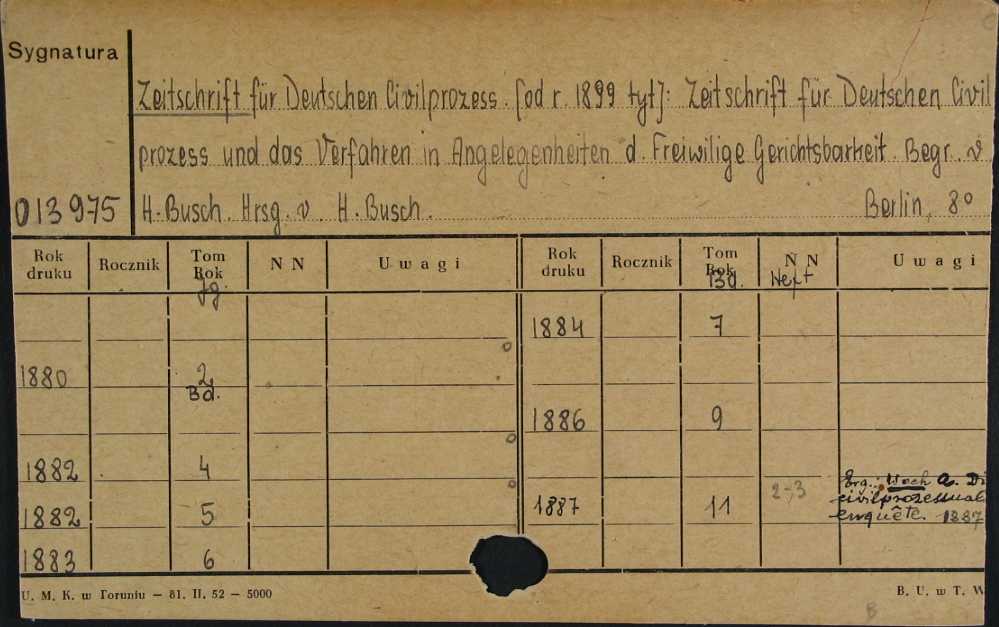 Sygnatura
Zeitschrift für Deutschen Civilprozess. [od r. 1899 tyt]: Zeitschrift für Deutschen Civil
prozess und das Verfahren in Angelegenheiten d. Freiwilige Gerichtsbarkeit. Begr. v.
013975 H. Busch. Hrsg. v. H. Busch. Berlin, 8°
Rok druku Rocznik Tom Rok NN Uwagi Rok druku Rocznik Tom Rok NN Uwagi
Jg. Bd. Heft
1884 7
1880 2
Bd.
1886 9
1882 4
Erg.: Wach A. Di
2-3 civilprozessual
1882 5 1887 11 enquête. 1887
1883 6
U. M. K. w Toruniu — 81. II. 52 — 5000 B. U. w T. W
B